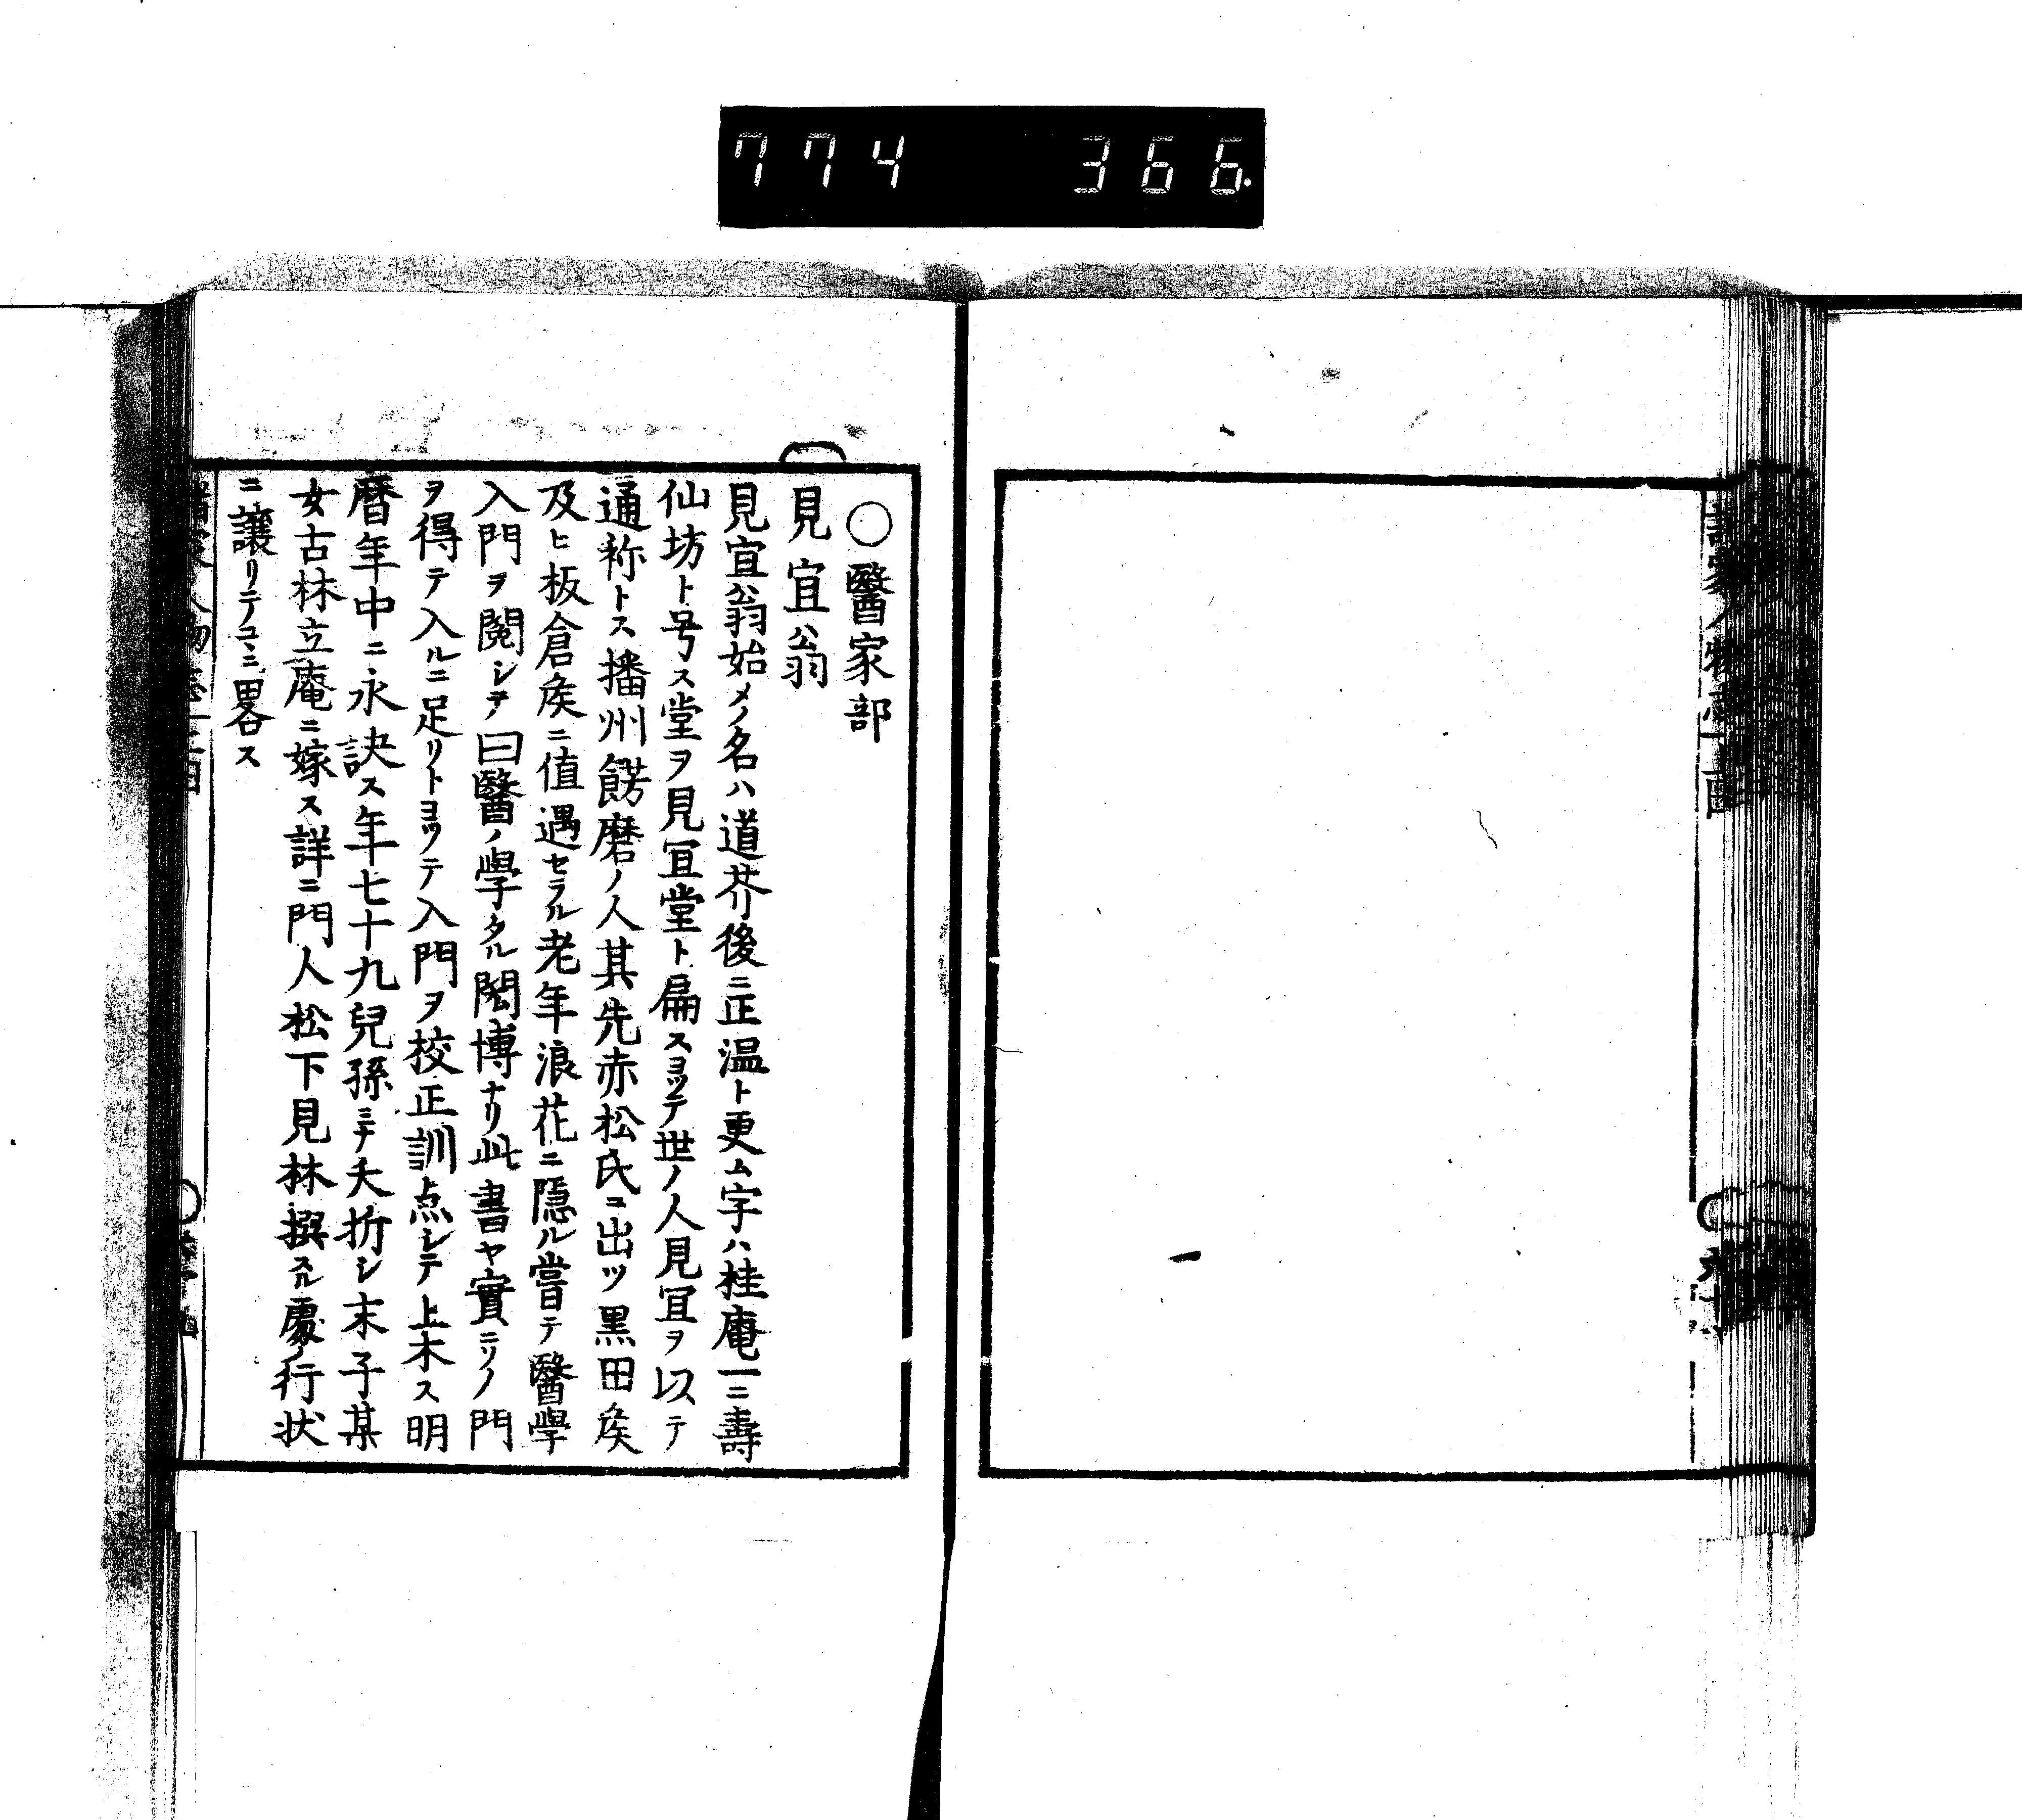 774 366.
○醫家部
見宜翁
見宜翁始メノ名ハ道芥後ニ正温ト更ム字ハ桂庵一ニ壽
仙坊ト号ス堂ヲ見宜堂ト扁スヨツテ世ノ人見宜ヲ以テ
通称トス播州餝磨ノ人其先赤松氏ニ出ツ黒田矦
及ヒ板倉矦ニ值遇セラル老年浪花ニ隠ル嘗テ醫學
入門ヲ閲シテ曰醫ノ學タル閎博ナリ此書ヤ實ニソノ門
ヲ得テ入ルニ足リトヨツテ入門ヲ校正訓点シテ上木ス明
暦年中ニ永訣ス年七十九兒孫ミナ夭折シ末子某
女古林立庵ニ嫁ス詳ニ門人松下見林撰スル處ノ行状
ニ譲リテコヽニ畧ス